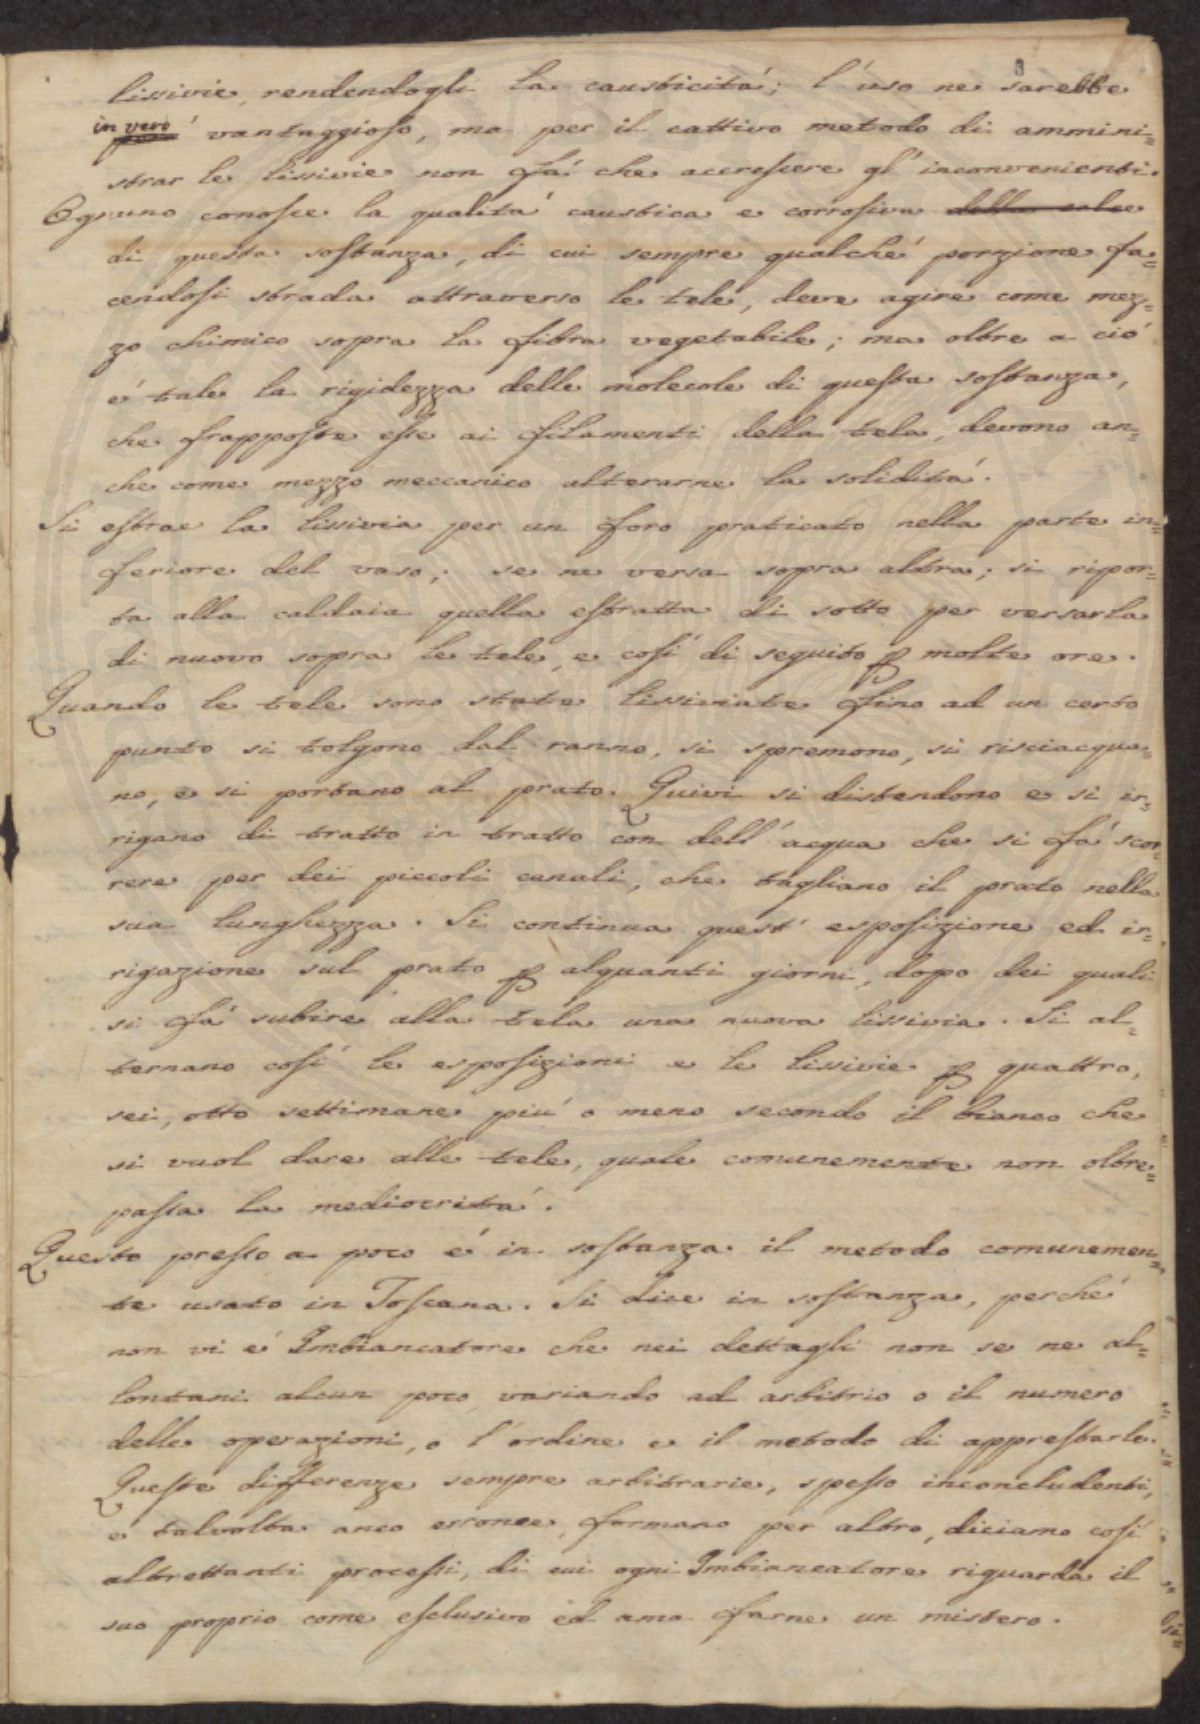 3
lissivie, rendendogli la causticitá; l'uso ne sarebbe
in vero vantaggioso, ma per il cattivo metodo di ammini=
strar le lissivie non fá che accrescere gl'inconvenienti.
Ognuno conosce la qualitá caustica e corrosiva della calce
di questa sostanza, di cui sempre qualché porzione fa=
cendosi strada attraverso le tele, deve agire come mez=
zo chimico sopra la fibra vegetabile; ma oltre a ció
é tale la rigidezza delle molecole di questa sostanza,
che frapposte esse ai filamenti della tela, devono an=
che come mezzo meccanico alterarne la soliditá.
Si estrae la lissivia per un foro praticato nella parte in=
feriore del vaso; se ne versa sopra altra; si ripor=
ta alla caldaia quella estratta di sotto per versarla
di nuovo sopra le tele, e cosí di seguito p molte ore.
Quando le tele sono state lissiviate fino ad un certo
punto si tolgono dal ranno, si spremono, si risciacqua=
no, e si portano al prato. Quivi si distendono e si ir=
rigano di tratto in tratto con dell'acqua che si fá scor=
rere per dei piccoli canali, che tagliano il prato nella
sua lunghezza. Si continua quest'esposizione ed ir=
rigazione sul prato p alquanti giorni, dopo dei quali
si fá subire alla tela una nuova lissivia. Si al=
ternano cosí le esposizioni e le lissivie p quattro,
sei, otto settimane piú o meno secondo il bianco che
si vuol dare alle tele, quale comunemente non oltre=
passa la mediocritá.
Questo presso a poco é in sostanza il metodo comunemen=
te usato in Toscana. Si dice in sostanza, perché
non vi é Imbiancatore che nei dettagli non se ne al=
lontani alcun poco, variando ad arbitrio o il numero
delle operazioni, o l'ordine e il metodo di apprestarle.
Queste differenze sempre arbitrarie, spesso inconcludenti,
e talvolta anco erronee, formano per altro, diciamo cosí
altrettanti processi, di cui ogni Imbiancatore riguarda il
suo proprio come esclusivo ed ama farne un mistero.